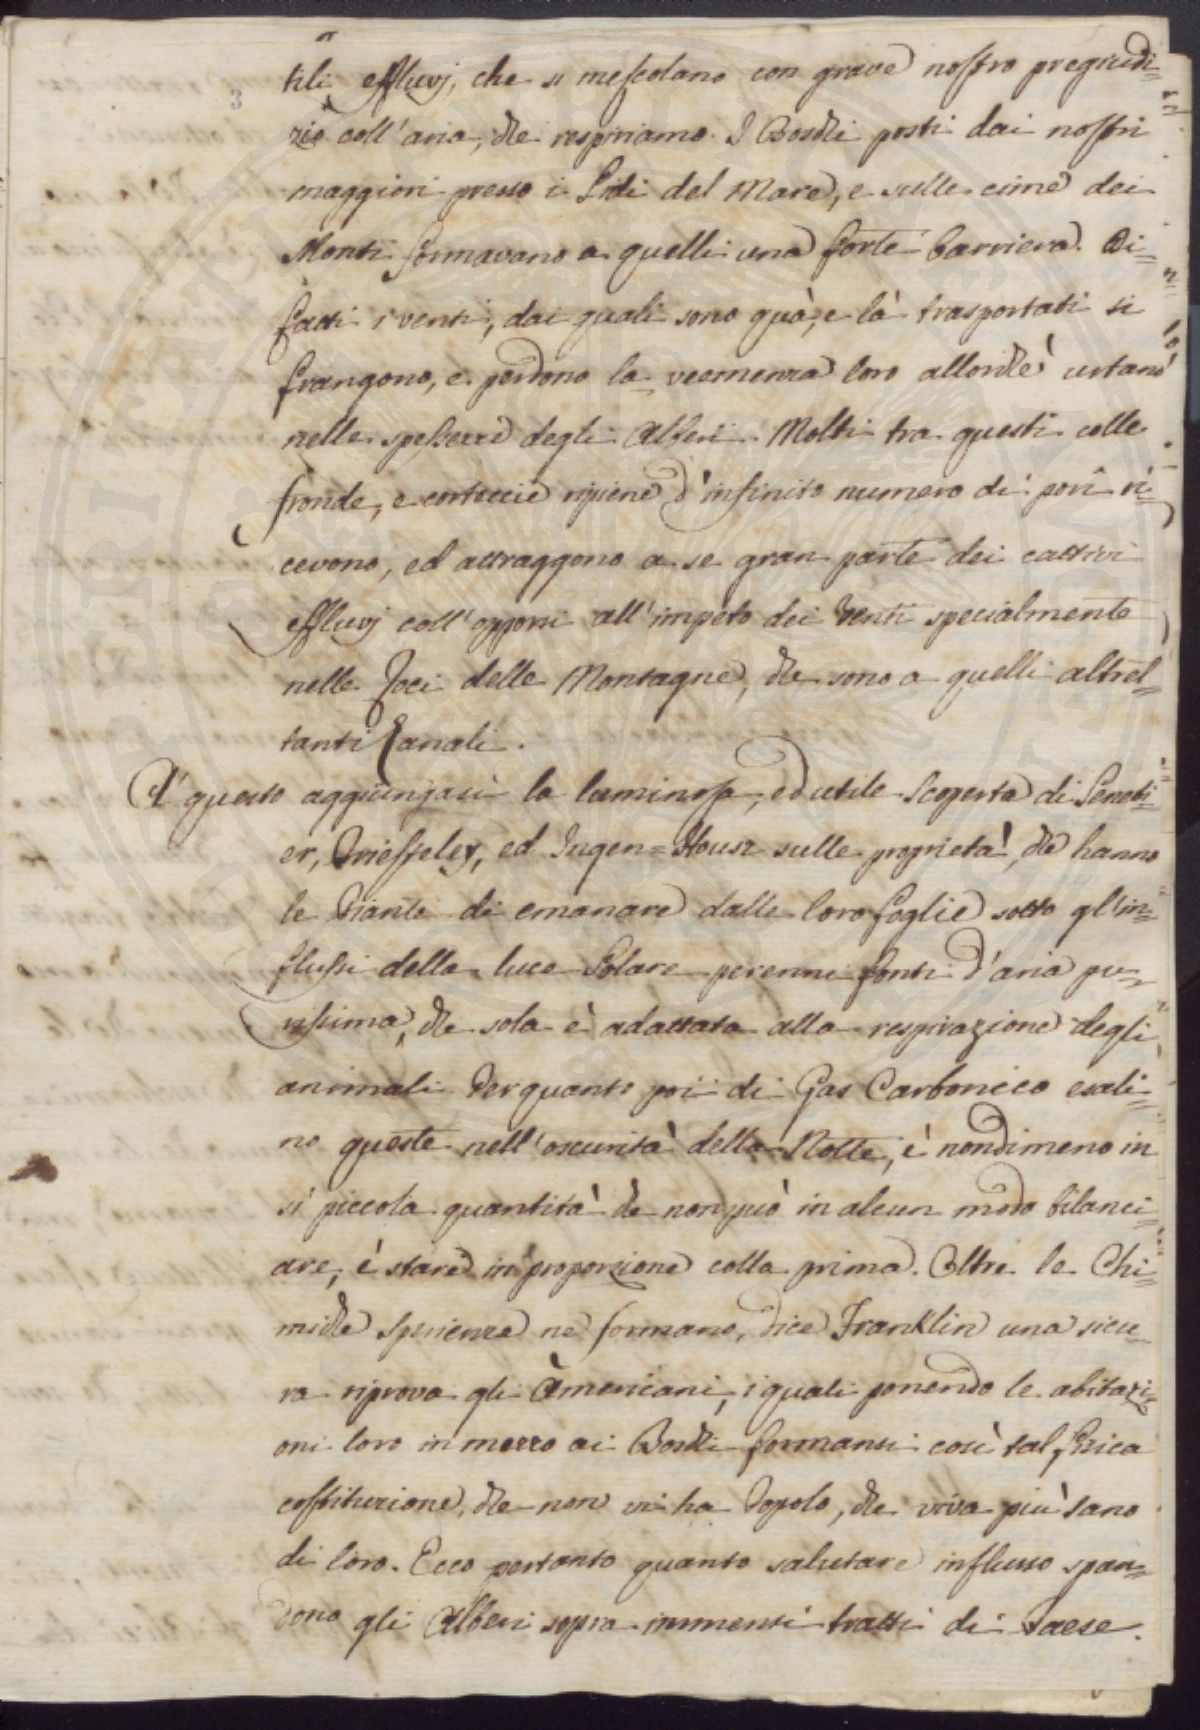 3
tili effluvj, che si mescolano con grave nostro pregiudi=
zio coll'aria, che respiriamo. I Boschi posti dai nostri
maggiori presso i Lidi del Mare, e sulle cime dei
Monti formavano a quelli una forte barriera. Di=
fatti i venti, dai quali sono quà, e là trasportati si
frangono, e perdono la veemenza loro allorchè urtano
nelle spessezze degli Alberi. Molti tra questi colle
fronde, e cortoccie ripiene d'infinito numero di pori ri=
cevono, ed attraggono a se gran parte dei cattivi
effluvj coll'opporsi all'impeto dei Venti specialmente
nelle foci delle Montagne, che sono a quelli altret=
tanti Canali.
A' questo aggiungasi la luminosa, ed utile scoperta di Senebi=
er, Priesteley, ed Ingen=Housz sulle proprietà, che hanno
le Piante di emanare dalle loro foglie sotto gl'in=
flussi della luce Solare perenni fonti d'aria pu=
rissima, che sola è adattata alla respirazione degli
animali. Per quanto poi di Gas Carbonico esali=
no queste nell'oscurità della Notte, è nondimeno in
sì piccola quantità che non può in alcun modo bilanci=
are, è stare in proporzione colla prima. Oltre le Chi=
miche sperienze ne formano, dice Franklin una sicu=
ra riprova gli Americani, i quali ponendo le abitazi=
oni loro in mezzo ai Boschi formansi così tal fisica
costituzione, che non vi ha Popolo, che viva più sano
di loro. Ecco pertanto quanto salutare influsso span=
dono gli Alberi sopra immensi tratti di Paese.